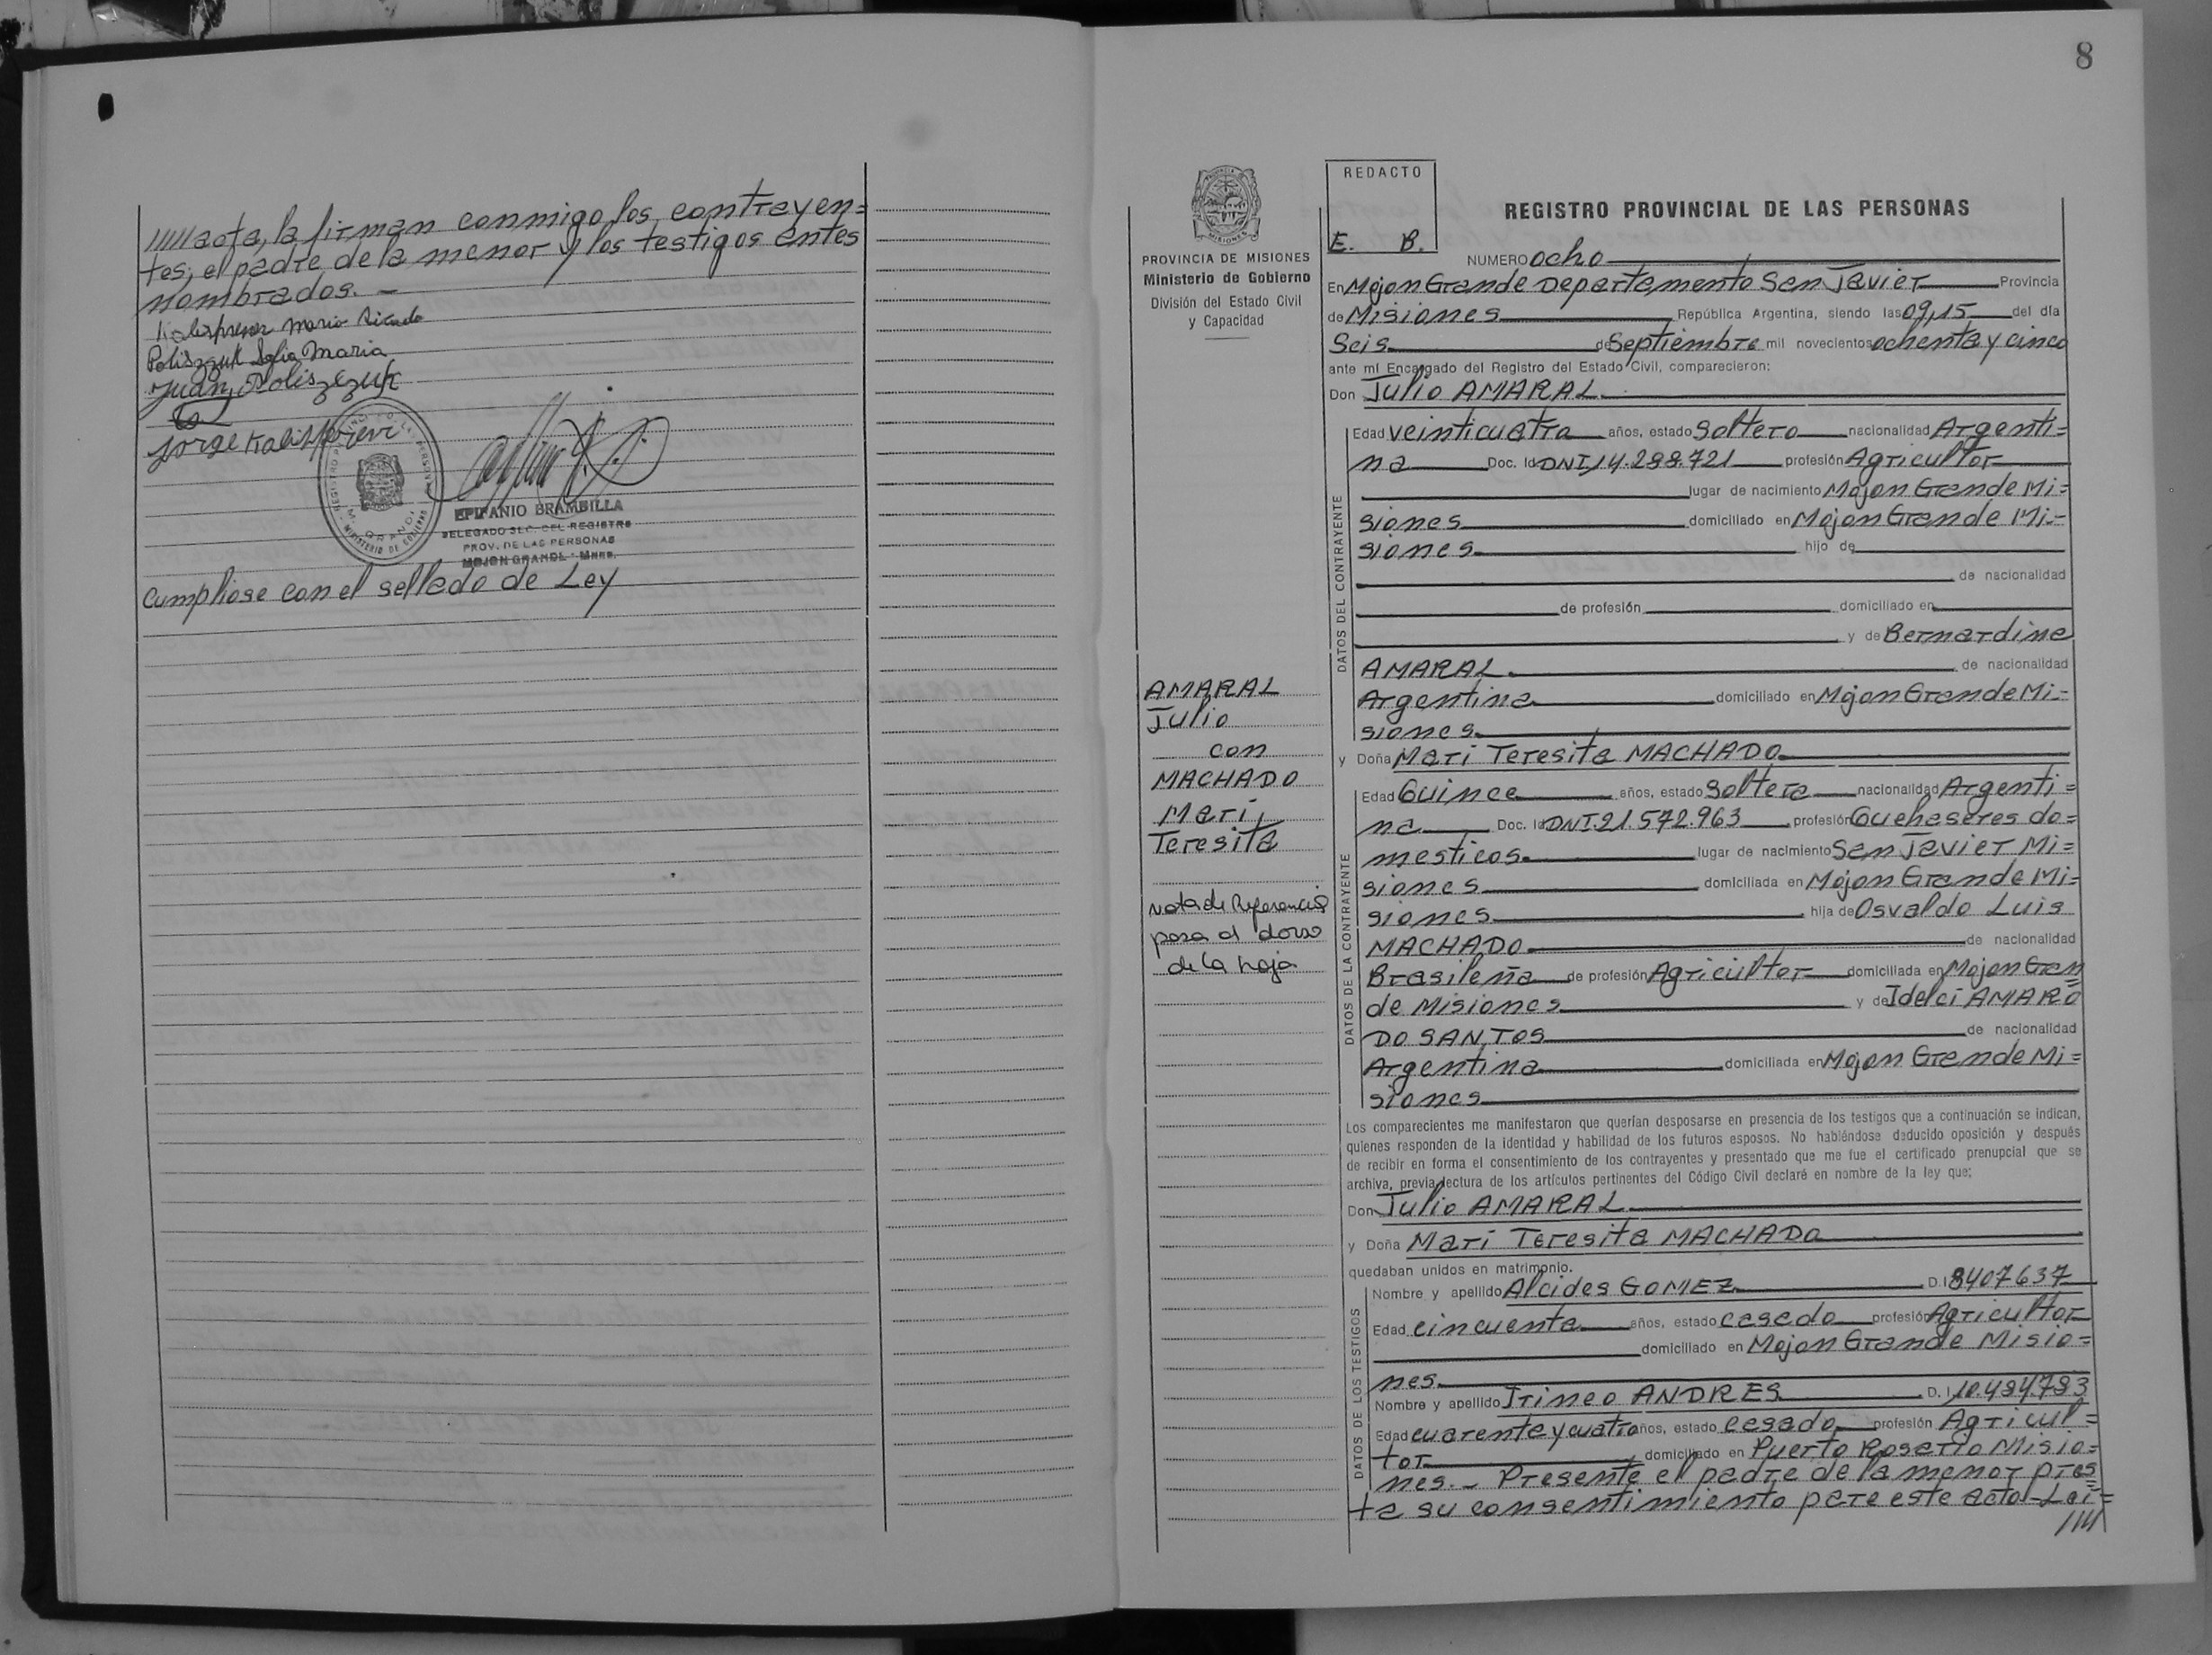 ///// acta, la firman conmigo los contrayen=
tes, el padre de la menor y los testigos antes
nombrados.-
Mario
Poliszczuk Sofia Maria
Juan Poliszczuk
Jorge
REGISTRO PROVINCIAL DE LAS PERSONAS
M. GRANDE
MINISTERIO DE GOBIERNO
EPIFANIO BRAMBILLA
DELEGADO SEC. DEL REGISTRO
PROV. DE LAS PERSONAS
MOJON GRANDE - Mnes.
Cumpliose con el sellado de Ley
8
PROVINCIA DE MISIONES
Ministerio de Gobierno
División del Estado Civil
y Capacidad
AMARAL
Julio
con
MACHADO
Mari
Teresita
Nota de Referencia
pasa al dorso
de la hoja
REDACTO
E. B.
REGISTRO PROVINCIAL DE LAS PERSONAS
NUMERO ocho
En Mojon Grande Departamento San Javier Provincia
de Misiones República Argentina, siendo las 09,15 del día
Seis de Septiembre mil novecientos ochenta y cinco
ante mí Encargado del Registro del Estado Civil, comparecieron:
Don Julio AMARAL
DATOS DEL CONTRAYENTE
Edad veinticuatro años, estado Soltero nacionalidad Argenti=
na Doc. Id DNI 14.288.721 profesión Agricultor
lugar de nacimiento Mojon Grande Mi=
siones domiciliado en Mojon Grande Mi=
siones hijo de
de nacionalidad
de profesión domiciliado en
y de Bernardina
AMARAL de nacionalidad
Argentina domiciliado en Mojon Grande Mi=
siones
y Doña Mari Teresita MACHADO
DATOS DE LA CONTRAYENTE
Edad Quince años, estado Soltera nacionalidad Argenti=
na Doc. Id DNI.21.572.963 profesión Quehaseres do=
mesticos lugar de nacimiento San Javier Mi=
siones domiciliada en Mojon Grande Mi=
siones hija de Osvaldo Luis
MACHADO de nacionalidad
Brasileña de profesión Agricultor domiciliada en Mojon Gran
de Misiones y de Idelci AMARO
DO SANTOS de nacionalidad
Argentina domiciliada en Mojon Grande Mi=
siones
Los comparecientes me manifestaron que querían desposarse en presencia de los testigos que a continuación se indican,
quienes responden de la identidad y habilidad de los futuros esposos. No habiéndose deducido oposición y después
de recibir en forma el consentimiento de los contrayentes y presentado que me fue el certificado prenupcial que se
archiva, previa lectura de los artículos pertinentes del Código Civil declaré en nombre de la ley que:
Don Julio AMARAL
y Doña Mari Teresita MACHADO
quedaban unidos en matrimonio.
DATOS DE LOS TESTIGOS
Nombre y apellido Alcides GOMEZ D.I 8407637
Edad cincuenta años, estado casado profesión Agricultor
domiciliado en Mojon Grande Misio=
nes
Nombre y apellido Irineo ANDRES D. I 10.484.783
Edad cuarenta y cuatro años, estado casado profesión Agricul=
tor domiciliado en Puerto Rosario Misio=
nes.- Presente el padre de la menor pres
ta su consentimiento para este acto-Lei=
////